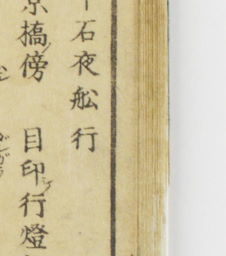 石夜舩行
京橋傍 目印行燈